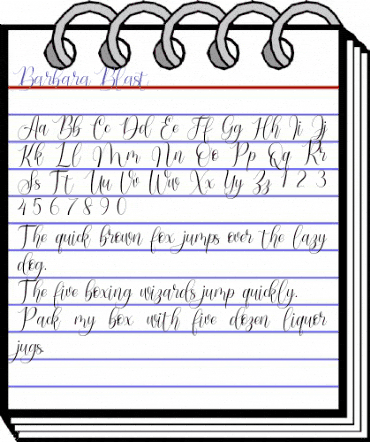 Barbara Blast
Aa Bb Cc Dd Ee Ff Gg Hh Ii Jj
Kk Ll Mm Nn Oo Pp Qq Rr
Ss Tt Uu Vv Ww Xx Yy Zz 1 2 3
4 5 6 7 8 9 0
The quick brown fox jumps over the lazy
dog.
The five boxing wizards jump quickly.
Pack my box with five dozen liquor
jugs.